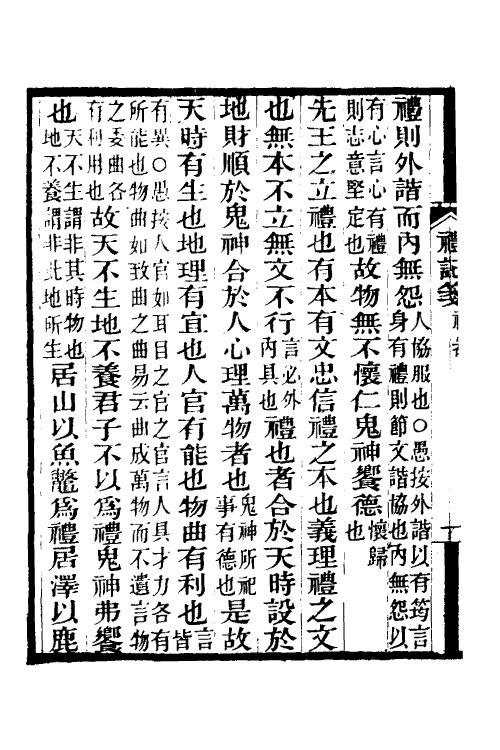 禮則外諧而內無怨人協服也○愚按外諧以有筠言
身有禮則節文諧協也內無怨以
有心言心有禮
則志意堅定也故物無不懷仁鬼神饗德懷歸
也
先王之立禮也有本有文忠信禮之本也義理禮之文
也無本不立無文不行言必外
內具也禮也者合於天時設於
地財順於鬼神合於人心理萬物者也鬼神所祀
事有德也是故
天時有生也地理有宜也人官有能也物曲有利也言
皆
有異○愚按人官如耳目之官之官言人具才力各有
所能也物曲如致曲之曲易云曲成萬物而不遺言物
之委曲各
有利用也故天不生地不養君子不以爲禮鬼神弗饗
也天不生謂非其時物也
地不養謂非此地所生居山以魚鼈爲禮居澤以鹿
禮記箋